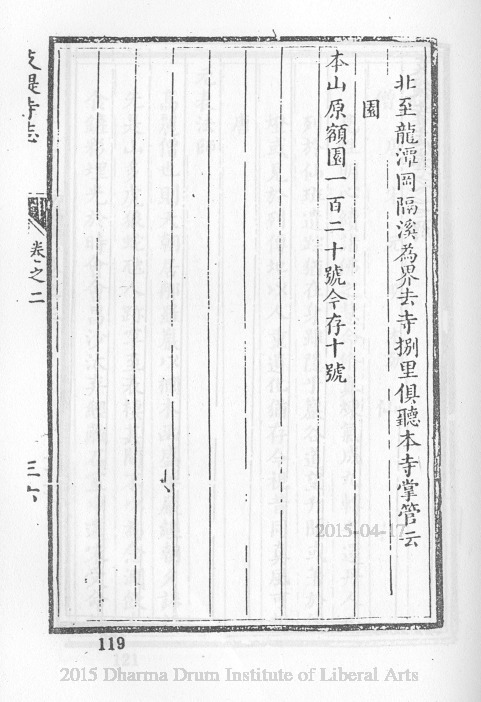 北至龍潭岡隔溪為界去寺捌里俱聽本寺掌管云
園
本山原額園一百二十號今存十號
支提寺志
卷之二
三六
2015-04-17
119
2015 Dharma Drum Institute of Liberal Arts